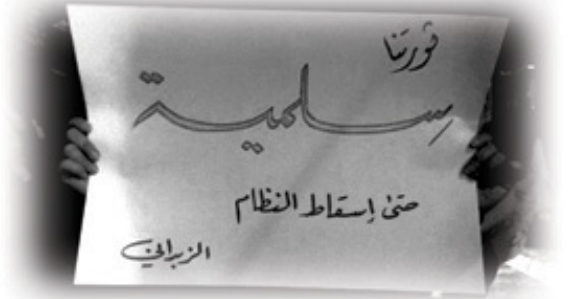 ثورتنا
سلمية
حتى إسقاط النظام
الزبداني